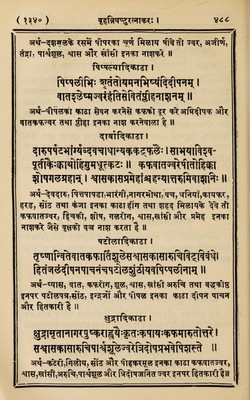 ( १३४० ) बृहन्निघण्टुरत्नाकरः । ४८८
अर्थ–दशमूलके रसमें पीपरका चूर्ण मिलाय पीवे तो ज्वर, अजीर्ण,
तंद्रा, पार्श्वशूल, श्वास और खाँसी इनका नाशकरे ।
पिप्पल्यादिकाढा ।
पिप्पलीभिः शृतंतोयमनभिष्यंदिदीपनम् ।
वातश्लेष्मज्वरंहंतिसेवितंप्लीहनाशनम् ॥
अर्थ–पीपलका काढा सेवन करनेसे कफको दूर करे अग्निदीपक और
वातकफज्वर तथा प्लीहा इनका नाशकरे ॥
दार्वादिकाढा ।
दारुपर्पटभार्ङ्ग्यब्दवचाधान्यककट्फलैः। साभयाविश्व-
पूतीकैःक्वाथोहिंगुमधूत्कटः ॥ कफवातज्वरेपीतोहिक्का
शोषगलग्रहान् । श्वासकासप्रमेहांश्चहन्यात्तरुमिवाशनिः॥
अर्थ–देवदारु, पित्तपापडा, भारंगी, नागरमोथा, वच, धनियाँ, कायफर,
हरड, सोंठ तथा कंजा इनका काढा हींग तथा शहद मिलायके देवे तो
कफवातज्वर, हिचकी, शोष, गलरोग, श्वास, खाँसी और प्रमेह इनका
नाशकरे जैसे वृक्षका वज्र नाश करताहै ।
पटोलादिकाढा ।
तृष्णान्वितेवातकफार्तिशूलेसश्वासकासारुचिविट्विबंधे।
हितंजलंदीपनपाचनंचपटोलशुंठीयवपिप्पलीनाम् ॥
अर्थ–प्यास, वात, कफरोग, शूल, श्वास, खाँसी अरुचि तथा बद्धकोष्ठ
इनपर पटोलपत्र, सोंठ, इन्द्रजौ और पीपल इनका काढा दीपन पाचन
और हितकारी है।
क्षुद्रादिकाढा ।
क्षुद्रामृतानागरपुष्कराह्वयैःकृतःकषायःकफमारुतोत्तरे।
सश्वासकासारुचिपार्श्वशूलेज्वरेत्रिदोषप्रभवेपिशस्ते ॥
अर्थ–कटेरी, गिलोय, सोंठ और पोहकरमूल इनका काढा कफवातज्वर,
श्वास, खाँसी, अरुचि, पार्श्वशूल और त्रिदोषजनित ज्वर इनपर हितकारी है॥